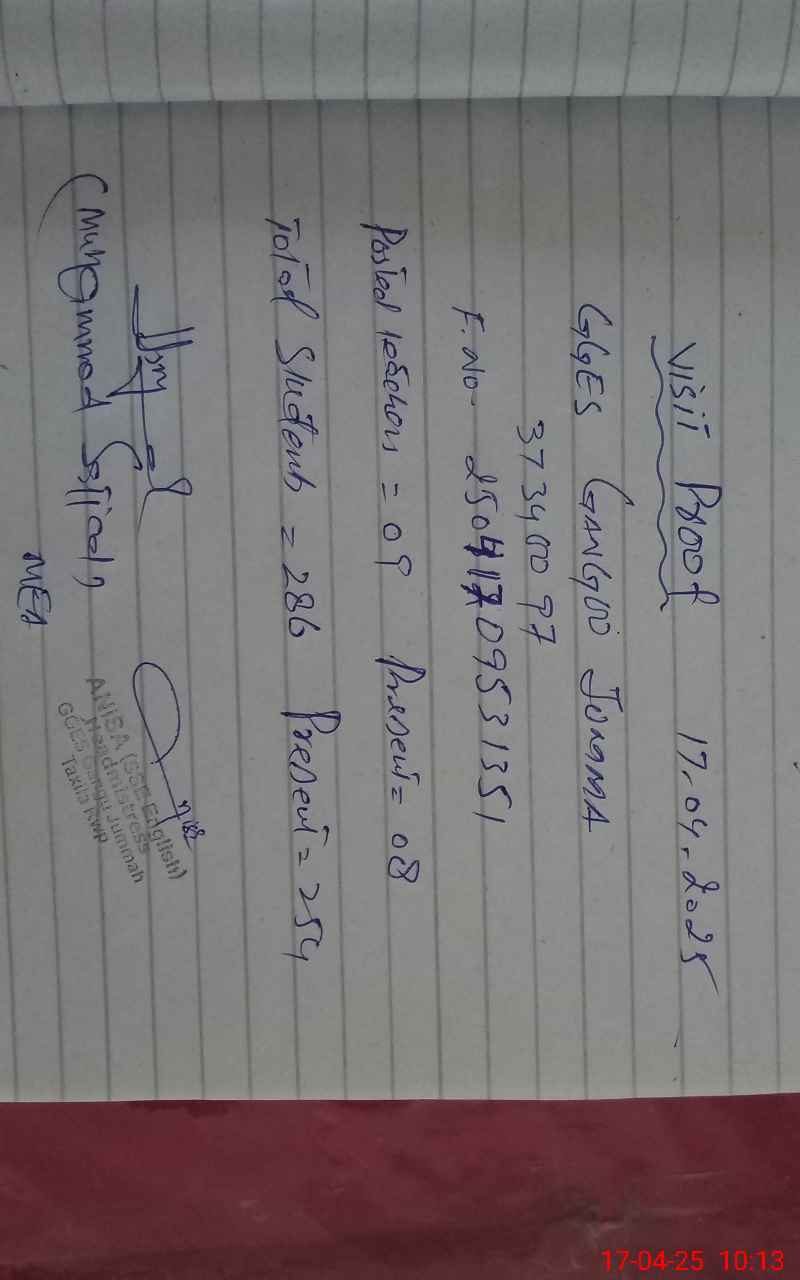 Visit Proof 17.04.2025
GGES GANGOO JUMMA
37340097
F.No- 250417 0953 1351
Posted teachers = 09 Present = 08
Total Students = 286 Present = 254
(Muhammad
MEA
ANISA (SSE English)
Headmistress
GGES Gangu Jummah
Taxila RWP
17-04-25 10:13